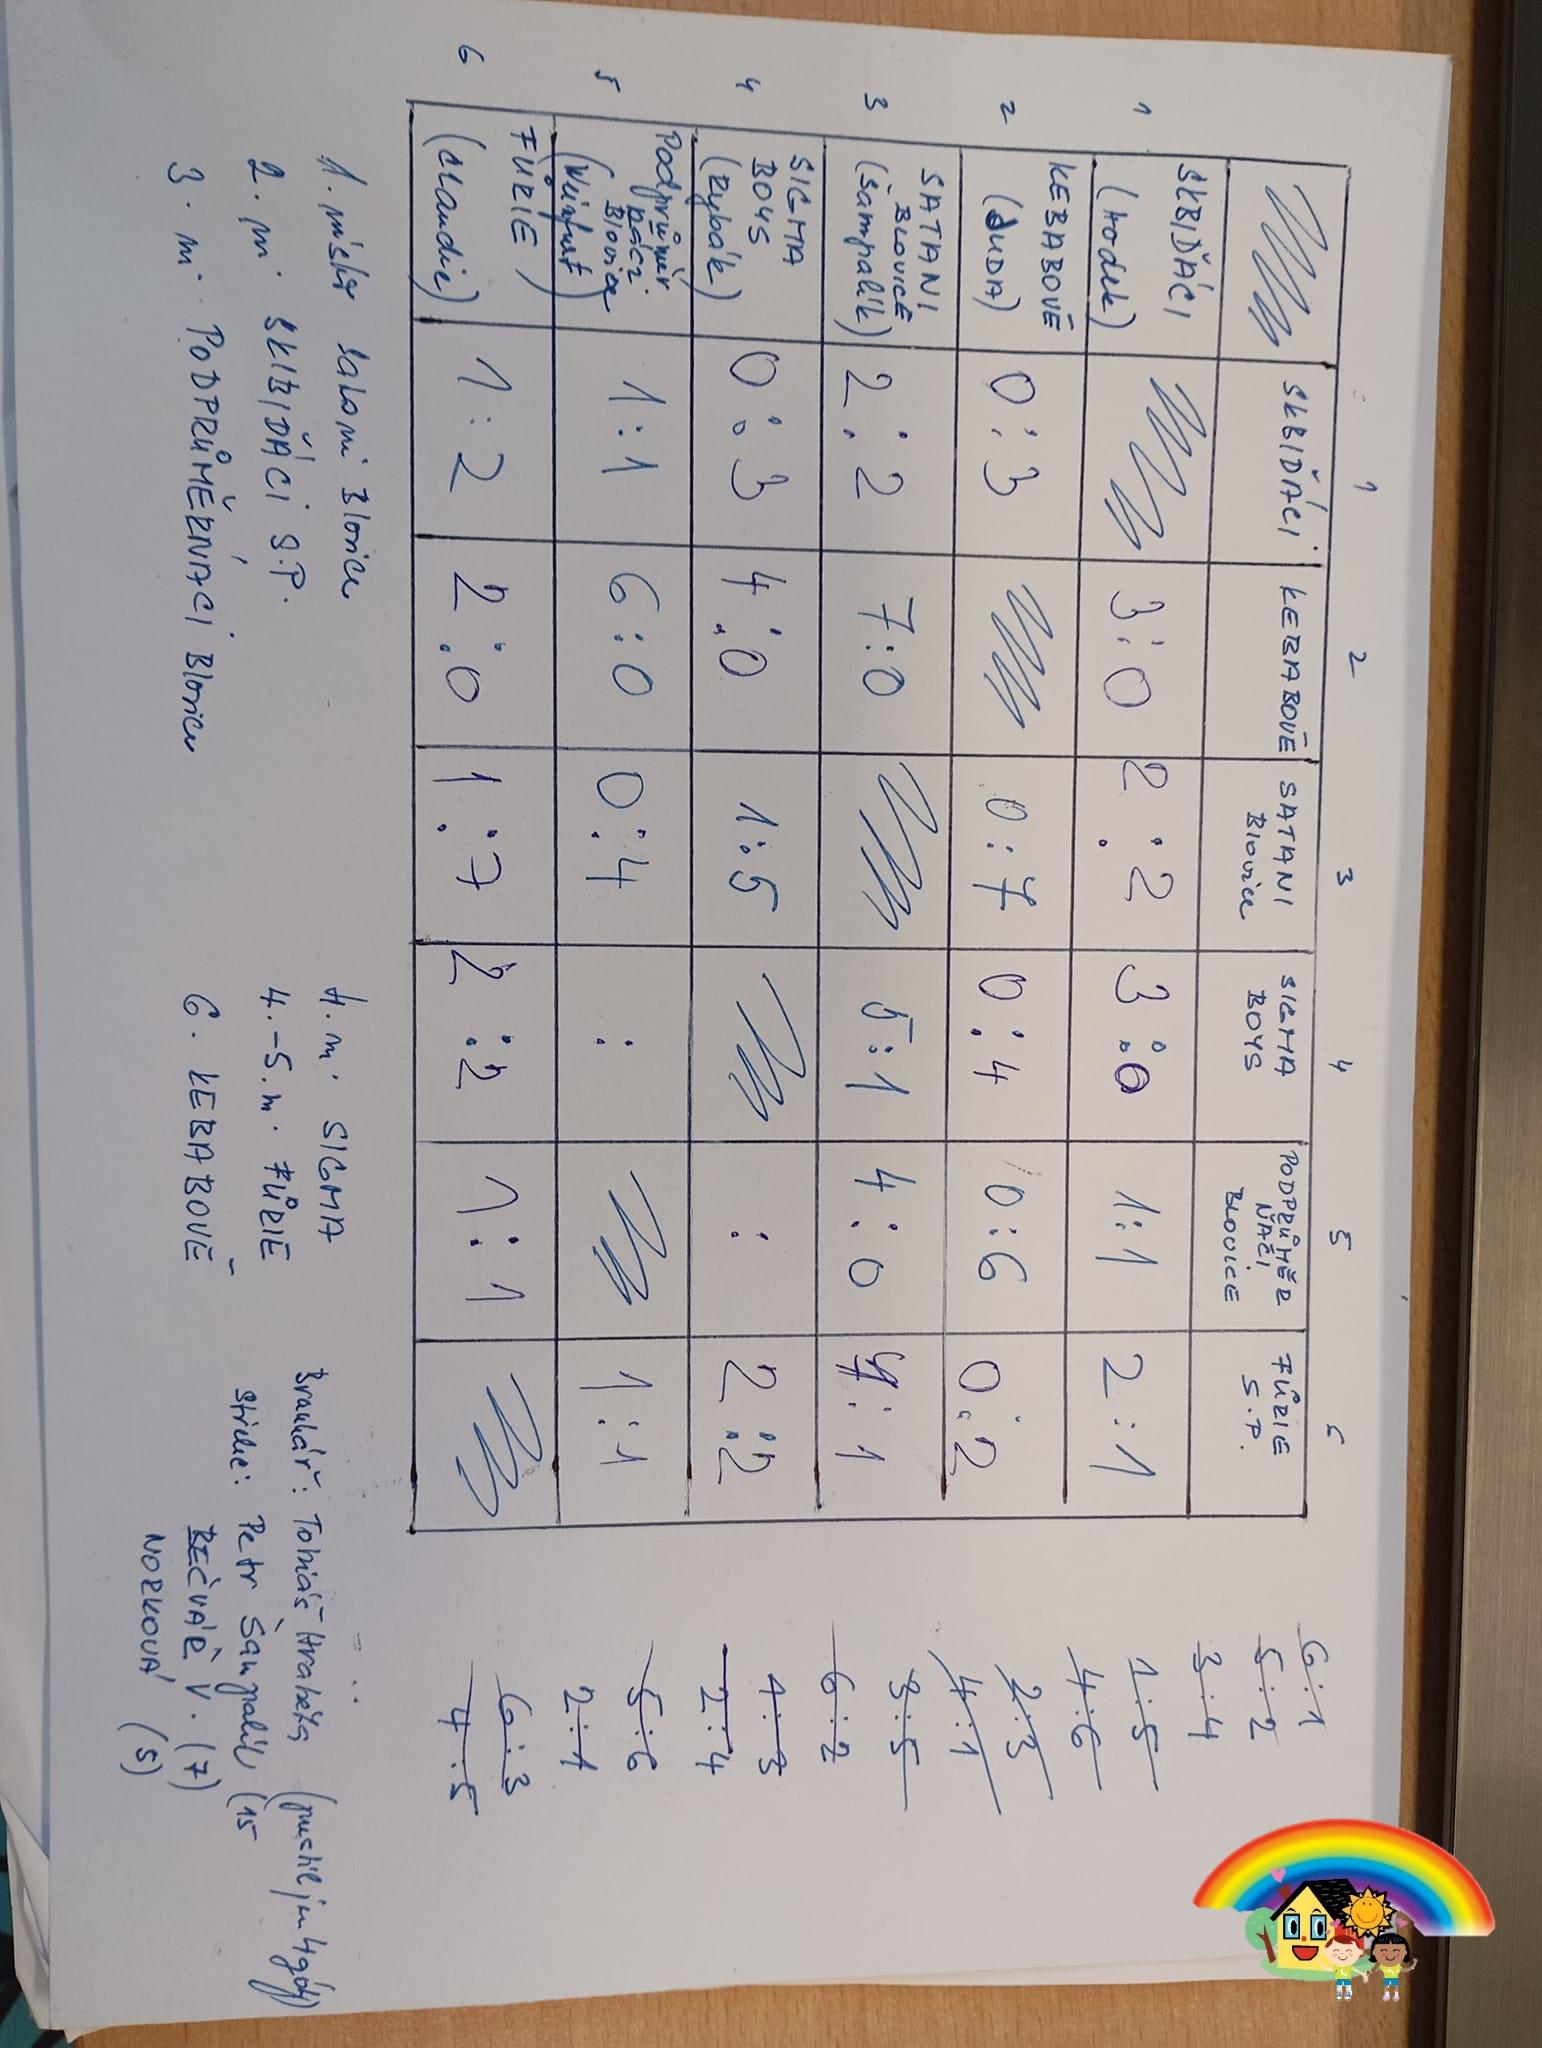 1 2 3 4 5 6
SKBIĎÁCI KEBABOVÉ SATANI SIGMA PODPRŮMĚR FŮRIE
Blovice BOYS ŇÁČI S.P.
BLOVICE
1 SKBIĎÁCI 3:0 2:2 3:0 1:1 2:1
(Hodek)
2 KEBABOVÉ 0:3 0:7 0:4 0:6 0:2
(DUDA)
3 SATANI 2:2 7:0 5:1 4:0 7:1
BLOVICE
(Šampalík)
4 SIGMA 0:3 4:0 1:5 : 2:2
BOYS
(Rybák)
5 Podprůměr 1:1 6:0 0:4 : 1:1
ňáčí
Blovice
6 FŮRIE 1:2 2:0 1:7 2:2 1:1
(Claudie)
6:1
5:2
3:4
1:5
4:6
2:3
4:1
3:5
6:2
1:3
2:4
5:6
2:1
6:3
4:5
1. místo Satani Blovice
2. m. SKIBIĎÁCI S.P.
3. m. PODPRŮMĚRŇÁCI Blovice
4. m. SIGMA
4.-5. m. FŮRIE
6. KEBABOVÉ
Brankář: Tobiáš Hraběta (pustil jen 4 góly)
Střelec: Petr Šampalík (15
BEČVÁŘ V. (7)
NORKOVÁ (5)